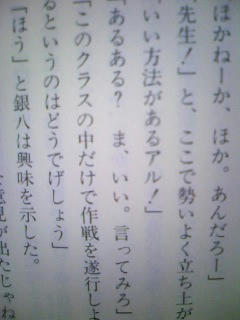 ほかねーか、ほか。あんだろー」
先生！」と、ここで勢いよく立ち上が
「いい方法があるアル！」
「あるある？　ま、いい。言ってみろ」
「このクラスの中だけで作戦を遂行しよ
るというのはどうでげしょう」
「ほう」と銀八は興味を示した。
意見が出たじゃね